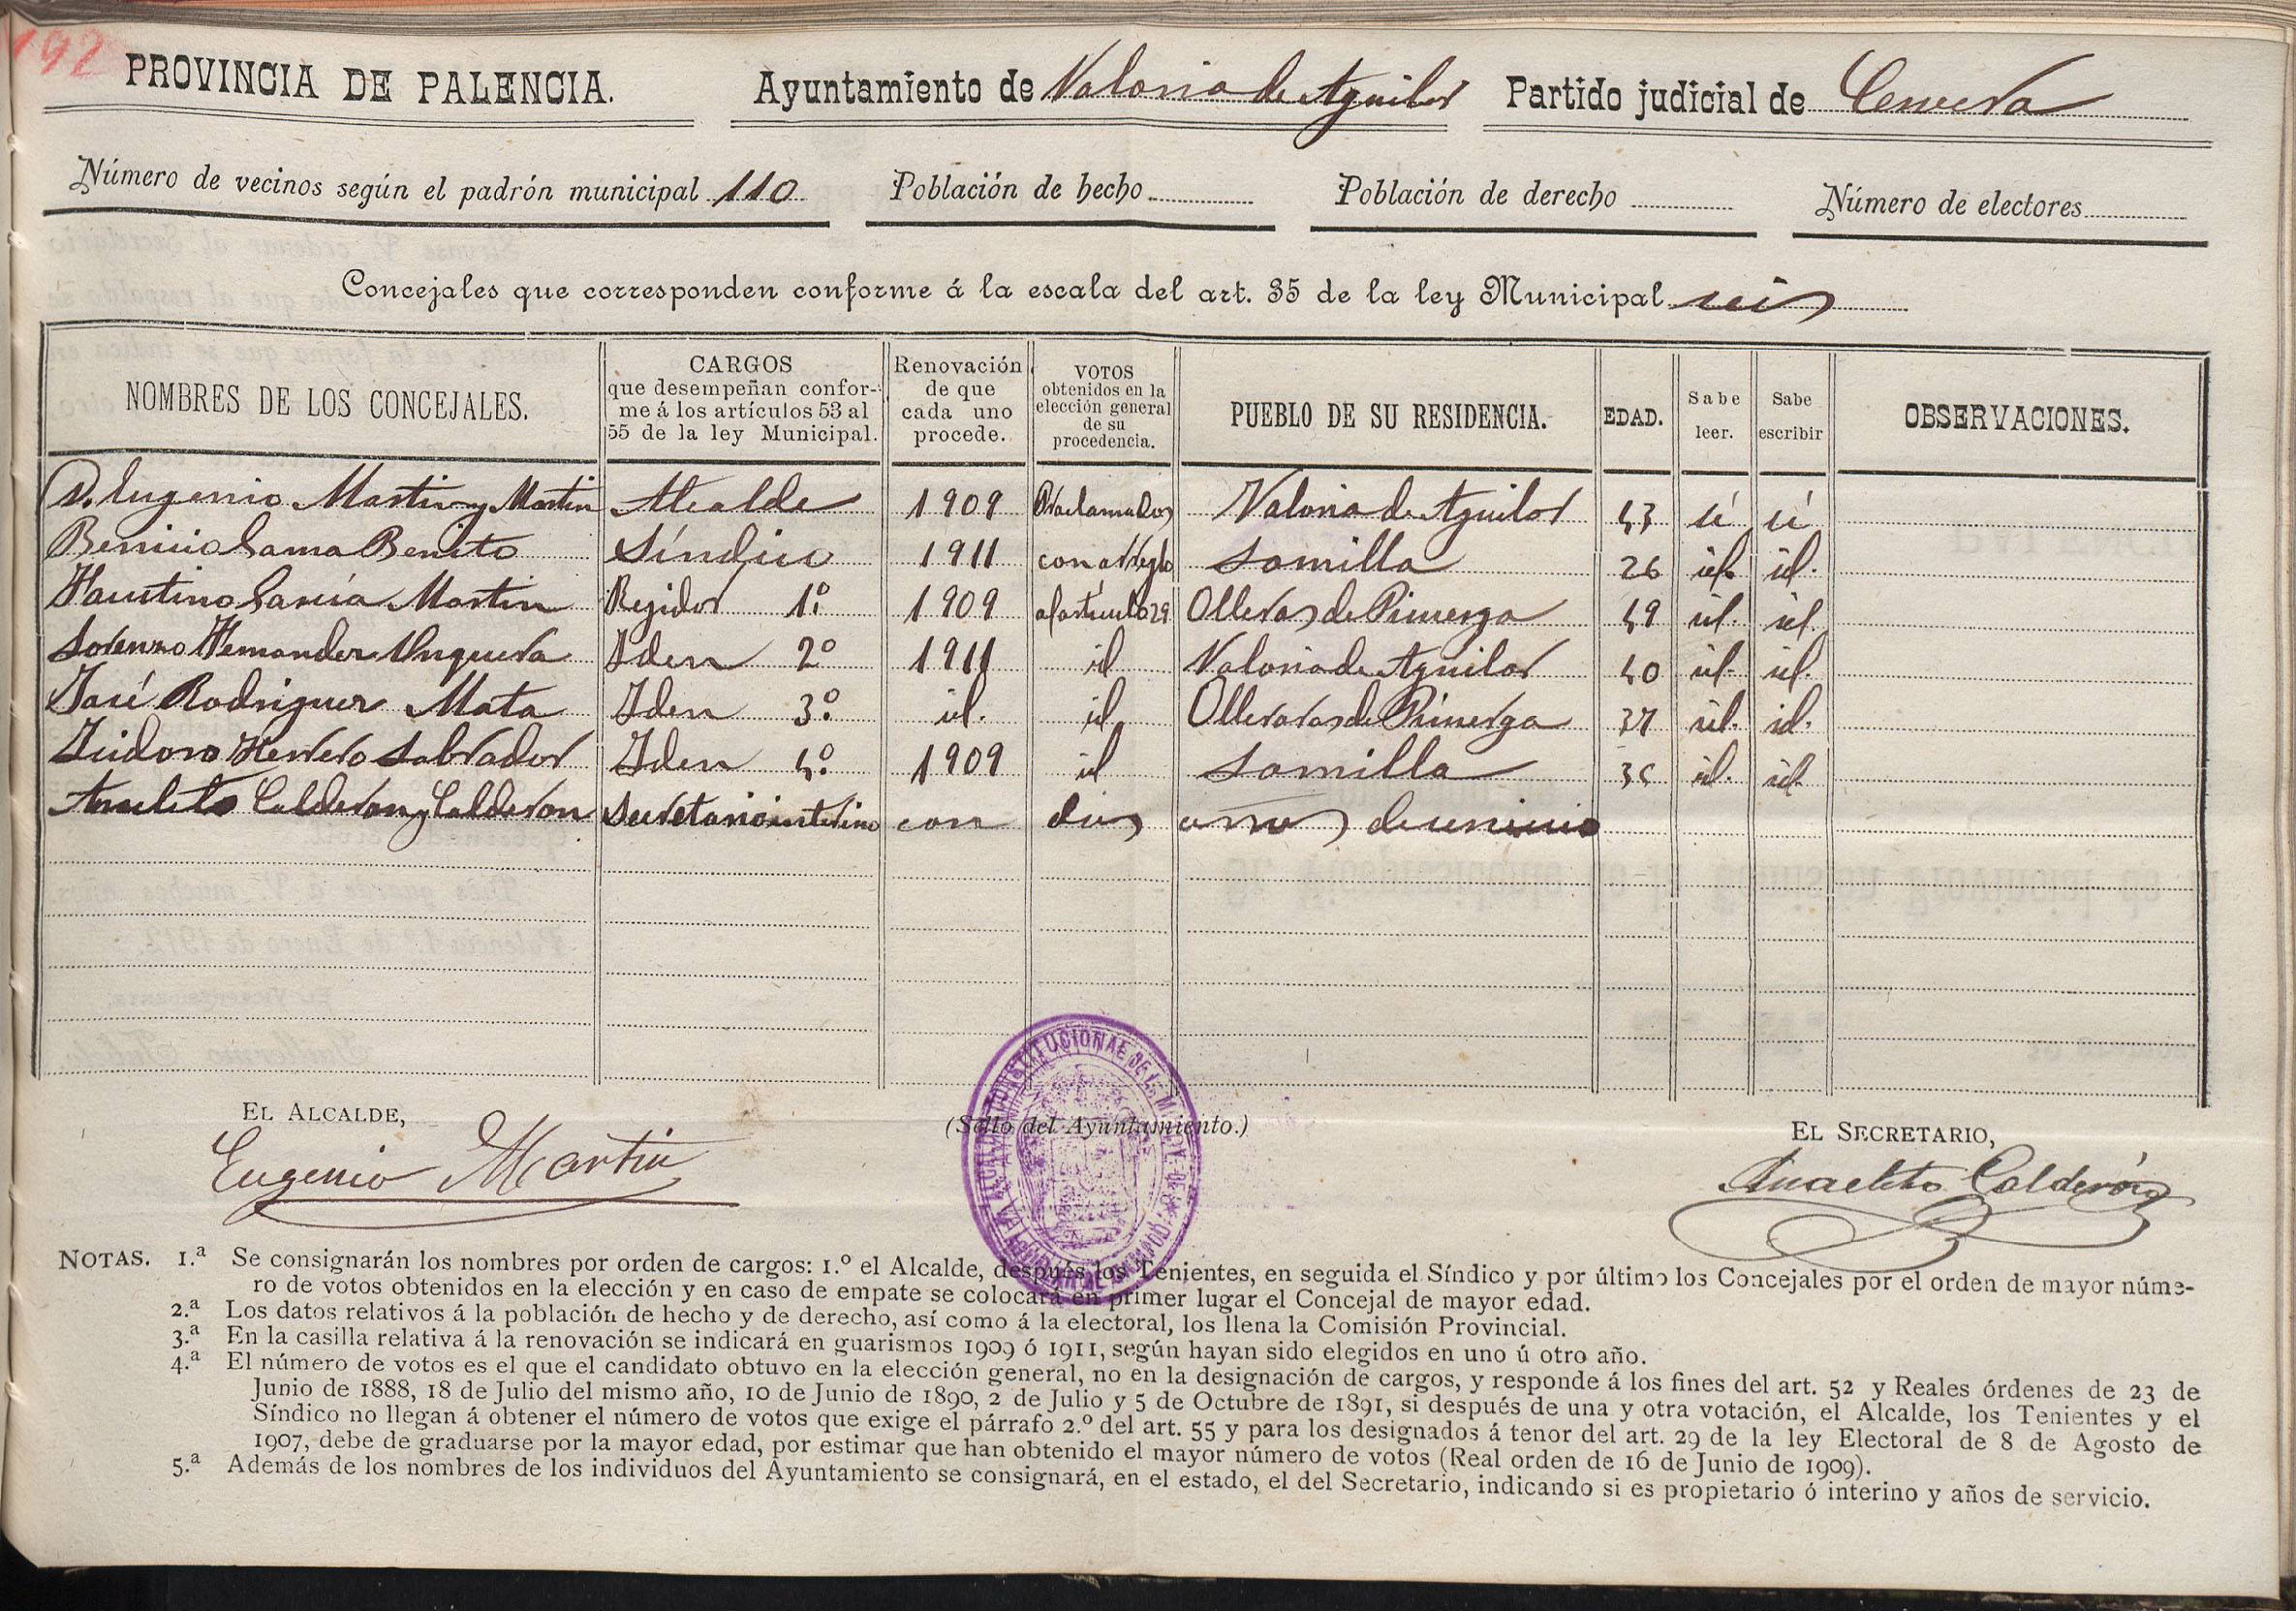 192
PROVINCIA DE PALENCIA. Ayuntamiento de Valoria de Aguilar Partido judicial de Cervera
Número de vecinos según el padrón municipal 110 Población de hecho Población de derecho Número de electores
Concejales que corresponden conforme á la escala del art. 35 de la ley Municipal seis
NOMBRES DE LOS CONCEJALES. CARGOS que desempeñan conforme á los artículos 53 al 55 de la ley Municipal. Renovación de que cada uno procede. VOTOS obtenidos en la elección general de su procedencia. PUEBLO DE SU RESIDENCIA. EDAD. Sabe leer. Sabe escribir OBSERVACIONES.
D. Eugenio Martin y Martin Alcalde 1909 Proclamados Valoria de Aguilar 43 sí sí
Benicio Gama Benito Síndico 1911 con arreglo Lomilla 26 id. id.
Faustino García Martin Regidor 1.º 1909 al artículo 29 Olleros de Pisuerga 49 id. id.
Lorenzo Hernander Unquera Iden 2º 1911 id Valoria de Aguilar 40 id. id.
José Rodriguer Mata Iden 3.º id. id Olleros de Pisuerga 37 id. id.
Isidoro Herrero Labrador Iden 4.º 1909 id Lomilla 35 id. id.
Anacleto Calderon y Calderon Secretario interino con dies años de servicio
EL ALCALDE, (Sello del Ayuntamiento.) EL SECRETARIO,
Eugenio Martin Anacleto Calderón
NOTAS. 1.ª Se consignarán los nombres por orden de cargos: 1.º el Alcalde, después los Tenientes, en seguida el Síndico y por último los Concejales por el orden de mayor núme-
ro de votos obtenidos en la elección y en caso de empate se colocará en primer lugar el Concejal de mayor edad.
2.ª Los datos relativos á la población de hecho y de derecho, así como á la electoral, los llena la Comisión Provincial.
3.ª En la casilla relativa á la renovación se indicará en guarismos 1909 ó 1911, según hayan sido elegidos en uno ú otro año.
4.ª El número de votos es el que el candidato obtuvo en la elección general, no en la designación de cargos, y responde á los fines del art. 52 y Reales órdenes de 23 de
Junio de 1888, 18 de Julio del mismo año, 10 de Junio de 1890, 2 de Julio y 5 de Octubre de 1891, si después de una y otra votación, el Alcalde, los Tenientes y el
Síndico no llegan á obtener el número de votos que exige el párrafo 2.º del art. 55 y para los designados á tenor del art. 29 de la ley Electoral de 8 de Agosto de
1907, debe de graduarse por la mayor edad, por estimar que han obtenido el mayor número de votos (Real orden de 16 de Junio de 1909).
5.ª Además de los nombres de los individuos del Ayuntamiento se consignará, en el estado, el del Secretario, indicando si es propietario ó interino y años de servicio.